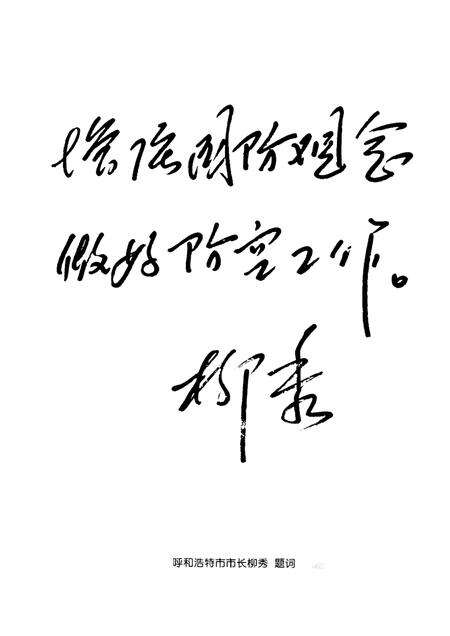 增强国防观念
做好防空工作。
柳秀
呼和浩特市市长柳秀 题词